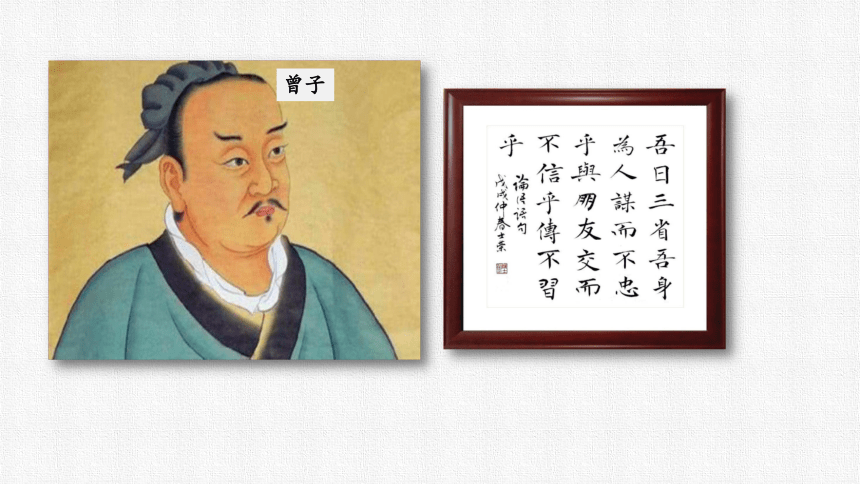 曾子
吾日三省吾身
為人謀而不忠
乎與朋友交而
不信乎傳不習
乎
論語語句
戊戌仲春士榮